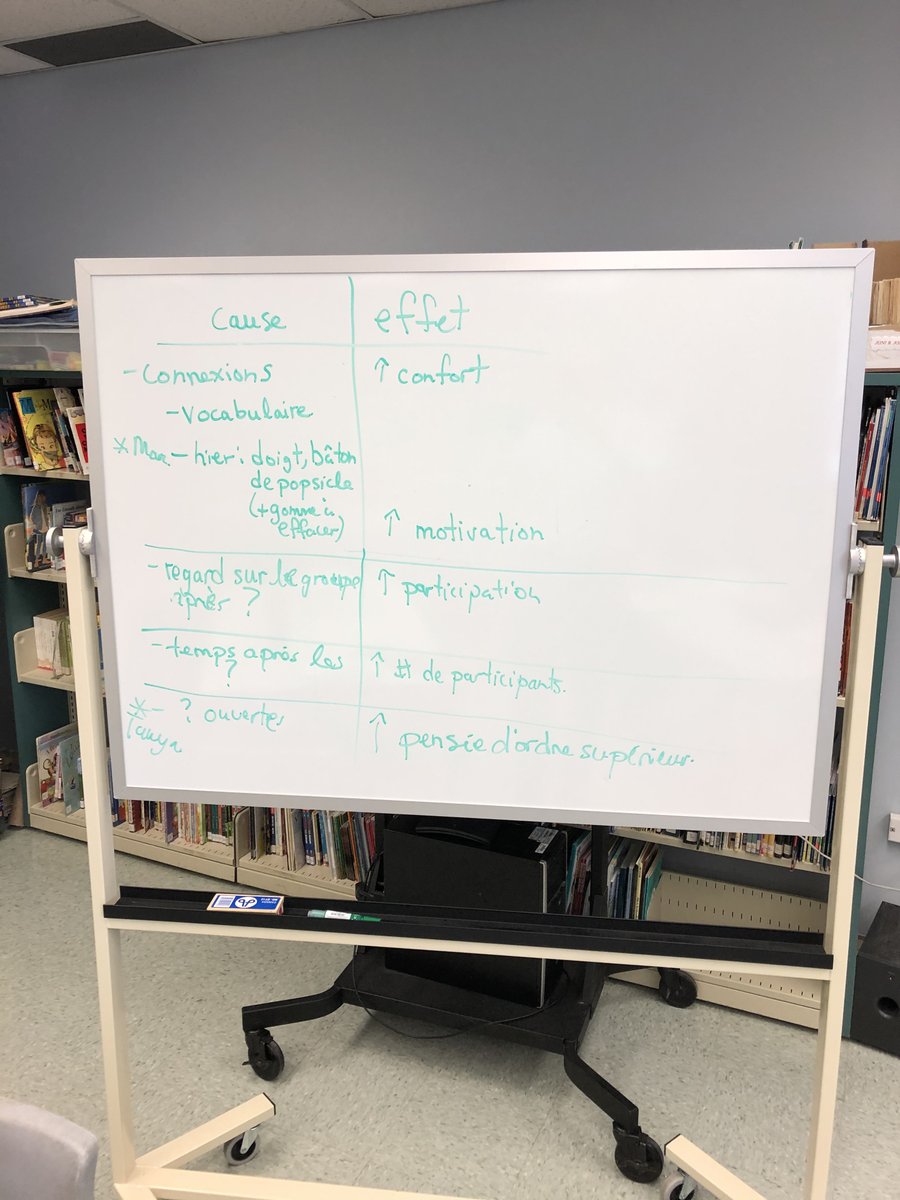 cause
effet
- Connexions
↑ confort
- Vocabulaire
- hier: doigt, bâton
de popsicle
(+gomme à
effacer)
↑ motivation
- regard sur le groupe
après ?
↑ participation
- temps après les
?
↑ # de participants.
* - ? ouvertes
Tanya
↑ pensée d'ordre supérieur.